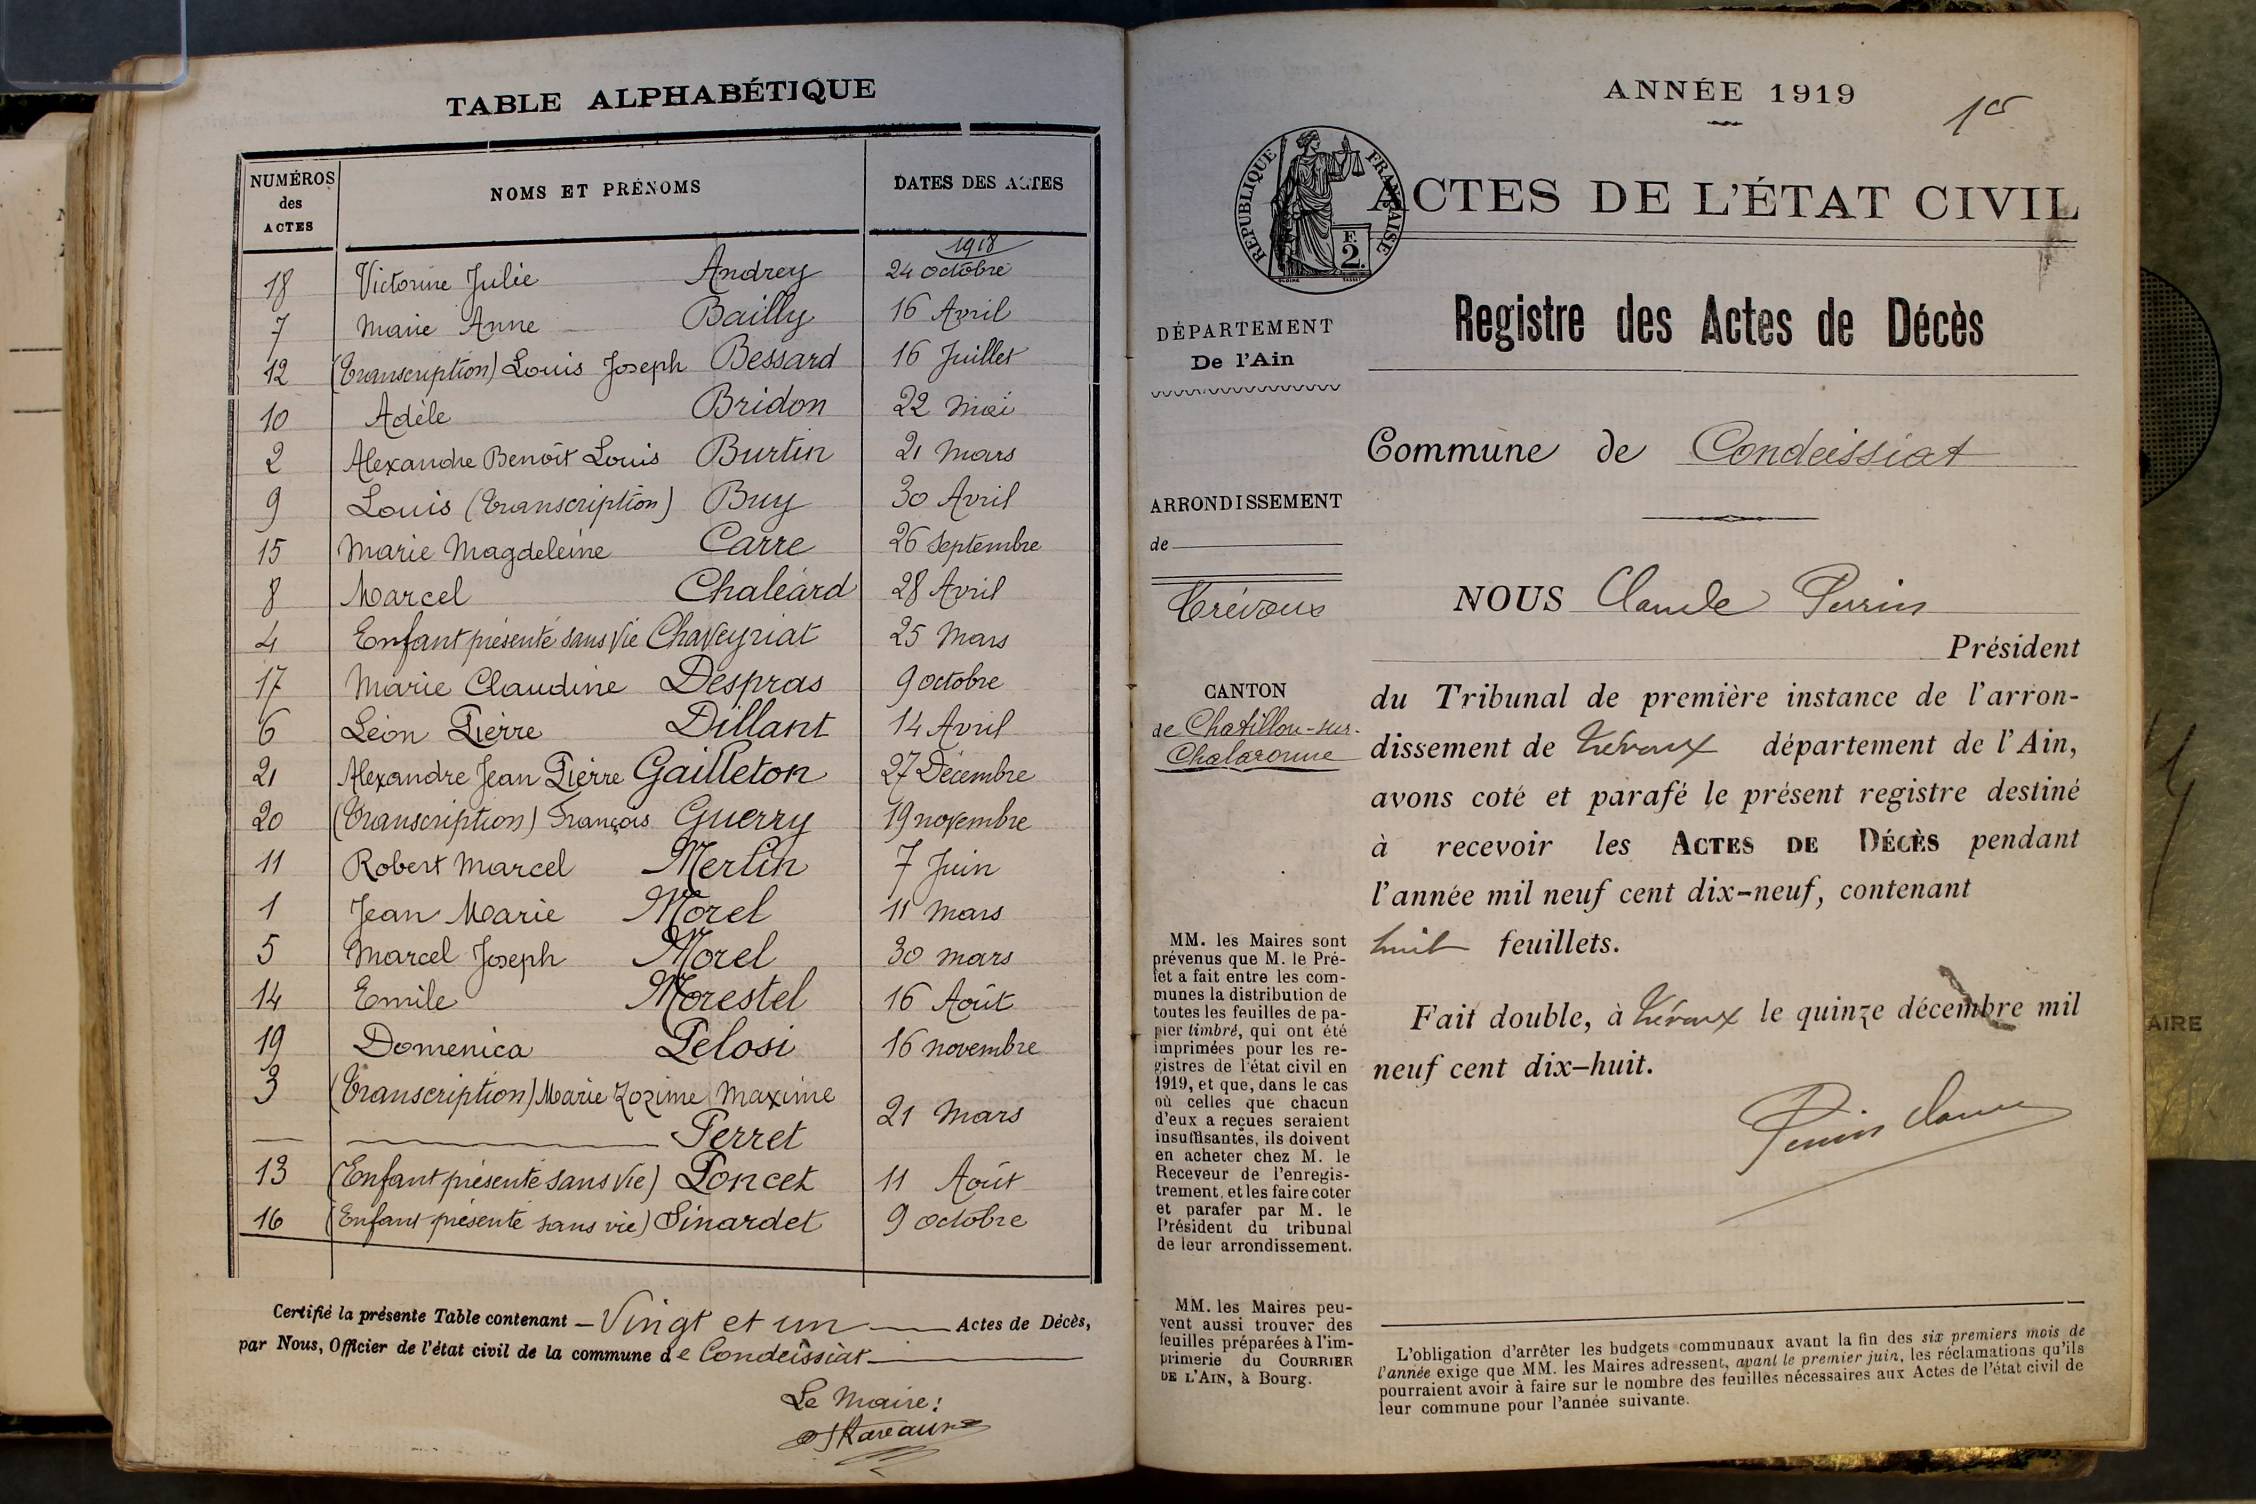 TABLE ALPHABÉTIQUE
NUMÉROS des ACTES NOMS ET PRÉNOMS DATES DES ACTES
1918
18 Victorine Julie Andrey 24 octobre
7 Marie Anne Bailly 16 Avril
12 (Transcription) Louis Joseph Bessard 16 Juillet
10 Adèle Bridon 22 Mai
2 Alexandre Benoît Louis Burtin 21 Mars
9 Louis (Transcription) Buy 30 Avril
15 Marie Magdeleine Carre 26 Septembre
8 Marcel Chaléard 28 Avril
4 Enfant présenté sans vie Chaveyriat 25 Mars
17 Marie Claudine Despras 9 octobre
6 Léon Pierre Dillant 14 Avril
21 Alexandre Jean Pierre Gailleton 27 Décembre
20 (Transcription) François Guerry 19 novembre
11 Robert Marcel Merlin 7 Juin
1 Jean Marie Morel 11 Mars
5 Marcel Joseph Morel 30 mars
14 Emile Morestel 16 Août
19 Domenica Pelosi 16 novembre
3 (Transcription) Marie Zozime Maxime
Perret 21 Mars
13 (Enfant présenté sans vie) Poncet 11 Août
16 (Enfant présenté sans vie) Sinardet 9 octobre
Certifié la présente Table contenant — Vingt et un — Actes de Décès,
par Nous, Officier de l'état civil de la commune de Condeissiat
Le Maire:
ANNÉE 1919
1er
RÉPUBLIQUE FRANÇAISE
F.
2.
ACTES DE L'ÉTAT CIVIL
Registre des Actes de Décès
DÉPARTEMENT
De l'Ain
Commune de Condeissiat
ARRONDISSEMENT
de
Trévoux
CANTON
de Chatillon-sur-
Chalaronne
NOUS Claude Perrin
Président
du Tribunal de première instance de l'arron-
dissement de Trévoux département de l'Ain,
avons coté et parafé le présent registre destiné
à recevoir les ACTES DE DÉCÈS pendant
l'année mil neuf cent dix-neuf, contenant
huit feuillets.
Fait double, à Trévoux le quinze décembre mil
neuf cent dix-huit.
Perrin Claude
MM. les Maires sont
prévenus que M. le Pré-
fet a fait entre les com-
munes la distribution de
toutes les feuilles de pa-
pier timbré, qui ont été
imprimées pour les re-
gistres de l'état civil en
1919, et que, dans le cas
où celles que chacun
d'eux a reçues seraient
insuffisantes, ils doivent
en acheter chez M. le
Receveur de l'enregis-
trement, et les faire coter
et parafer par M. le
Président du tribunal
de leur arrondissement.
MM. les Maires peu-
vent aussi trouver des
feuilles préparées à l'im-
primerie du COURRIER
DE L'AIN, à Bourg.
L'obligation d'arrêter les budgets communaux avant la fin des six premiers mois de
l'année exige que MM. les Maires adressent, avant le premier juin, les réclamations qu'ils
pourraient avoir à faire sur le nombre des feuilles nécessaires aux Actes de l'état civil de
leur commune pour l'année suivante.
AIRE